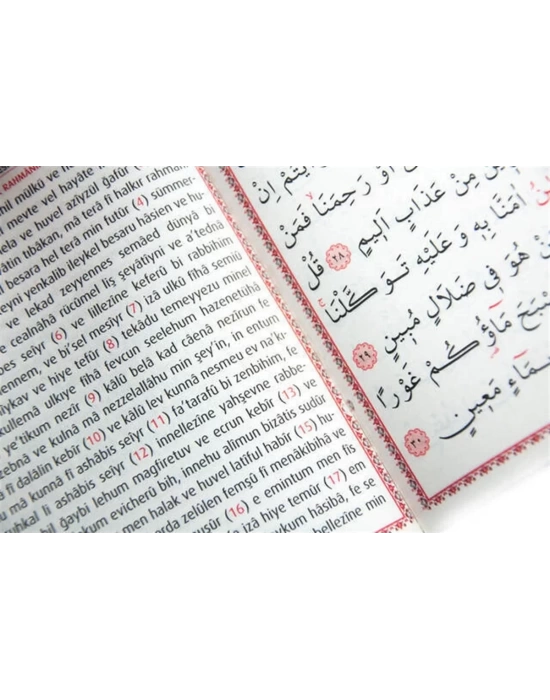 RAHMAN
mil mülkü ve
l mevte vel hayâte
ela ve huvel azîyzül gafûr
vâtin tıbâkan, mâ terâ fî halkır rahmâni
l besara hel terâ min futûr (4) sümmer-
teyni yenkalib ileykel besaru hâsien ve hu-
ve lekad zeyyennes semâed dünyâ bi
ve cealnâhâ rücûmel liş şeyâtîyni ve a'tednâ
bes seîyr (6) ve lillezîne keferû bi rabbihim
ennem, ve bi'sel mesîyr (7) izâ ulkû fîhâ semiû
hîykav ve hiye tefûr (8) tekâdu temeyyezu minel
küllemâ ulkıye fîhâ fevcun seelehum hazenetühâ
e'tikum nezîr (9) kâlû belâ kad câenâ nezîrun fe
zebnâ ve kulnâ mâ nezzelallâhu min şey'in, in entum
â fî dalâlin kebîr (10) ve kâlû lev kunnâ nesmeu ev na'kı-
mâ kunnâ fî ashâbis seîyr (11) fa'tarafû bi zenbihim, fe
uhkal li ashâbis seîyr (12) innellezîne yahşevne rabbe-
bil ğaybi lehum mağfiretuv ve ecrun kebîr (13) ve
kum evicherû bih, innehu alîmun bizâtis sudûr
men halak ve huvel latîful habîr (15) hu-
arda zelûlen femşû fî menâkibihâ ve
nuşûr (16) e emintum men fis
izâ hiye temûr (17) em
aykum hâsibâ, fe se
bellezîne min
اَوْ رَحِمَنَاۙ فَمَنْ
مِنْ عَذَابٍ اَلِيمٍ ﴿٢٨﴾ قُلْ
اٰمَنَّا بِهِ وَعَلَيْهِ تَوَكَّلْنَاۚ
مَنْ هُوَ فِي ضَلَالٍ مُبِينٍ ﴿٢٩﴾
مَٓاؤُكُمْ غَوْرًا
مَعِينٍ ﴿٣٠﴾